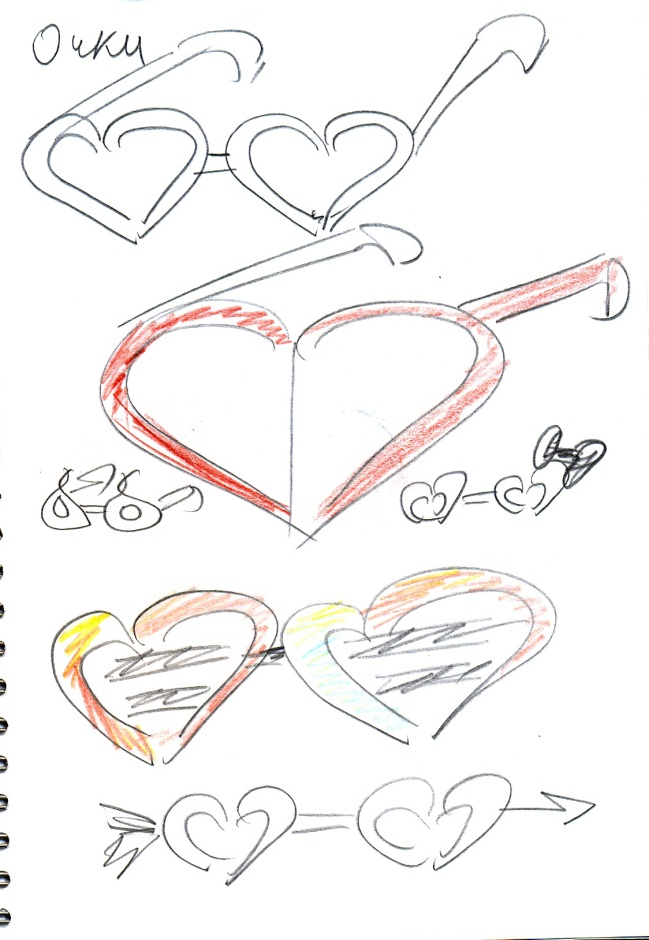 Очки